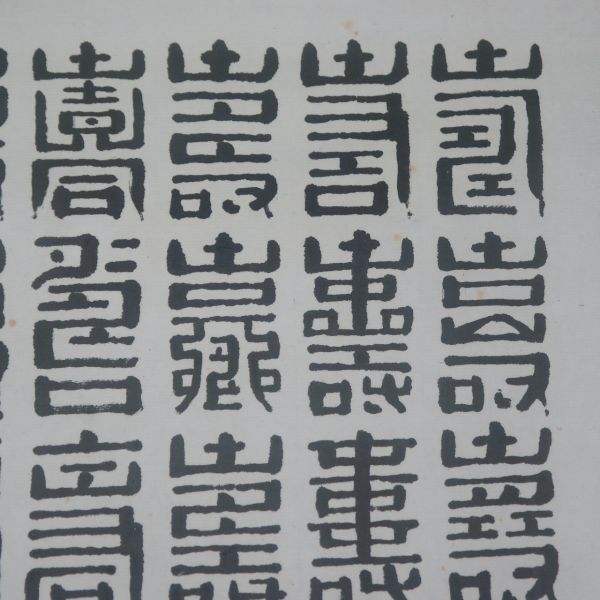 壽壽壽
壽壽壽
壽壽壽
壽壽壽